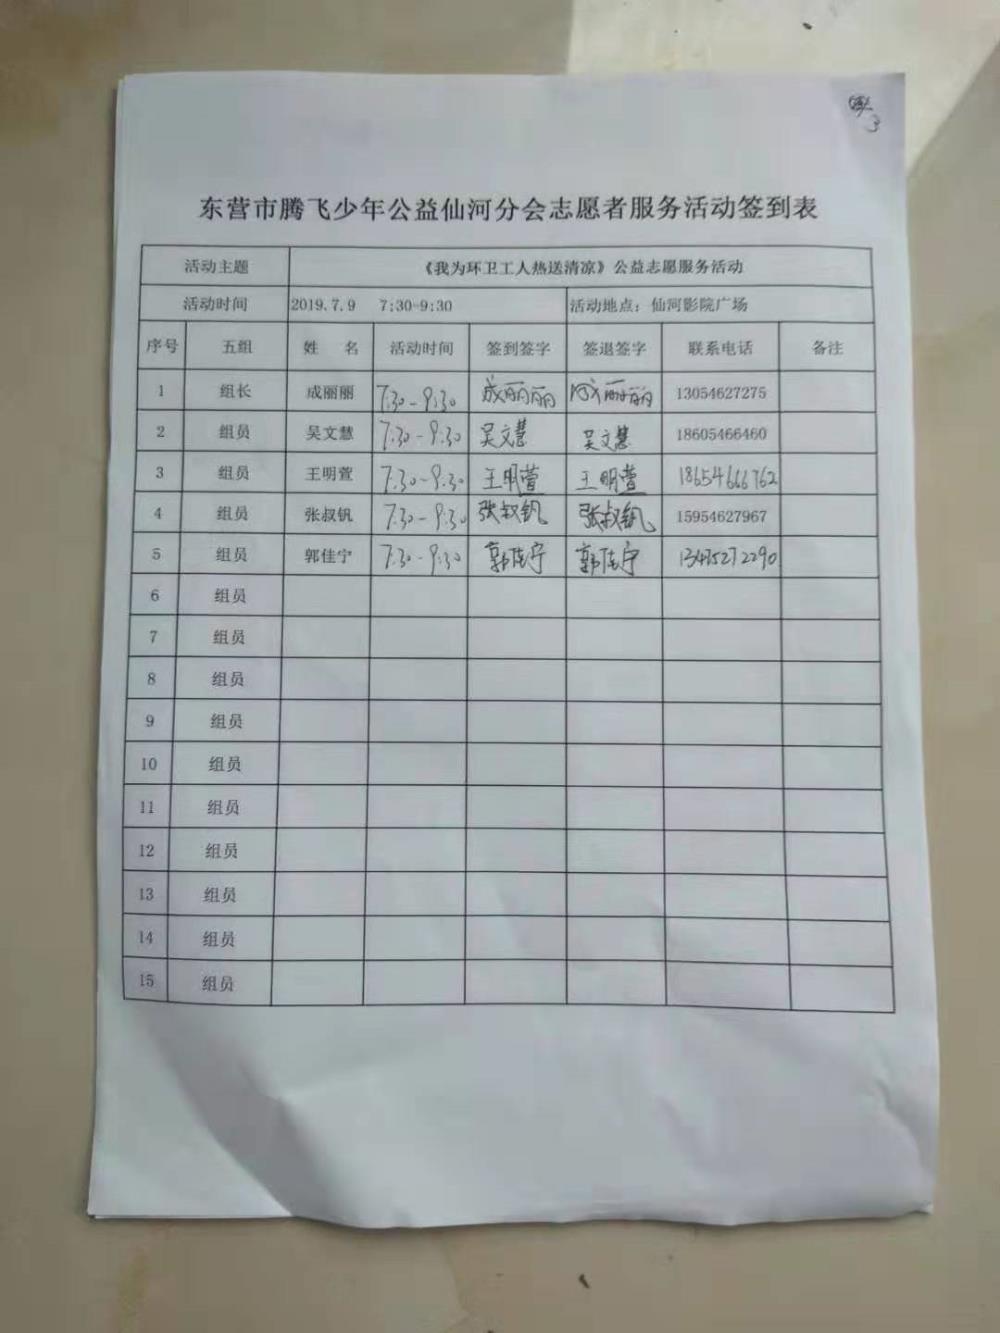 3
东营市腾飞少年公益仙河分会志愿者服务活动签到表
活动主题 《我为环卫工人热送清凉》公益志愿服务活动
活动时间 2019.7.9 7:30-9:30 活动地点：仙河影院广场
序号 五组 姓 名 活动时间 签到签字 签退签字 联系电话 备注
1 组长 成丽丽 7:30-9:30 成丽丽 成丽丽 13054627275
2 组员 吴文慧 7:30-9:30 吴文慧 吴文慧 18605466460
3 组员 王明萱 7:30-9:30 王明萱 王明萱 18654666762
4 组员 张叔钒 7:30-9:30 张叔钒 张叔钒 15954627967
5 组员 郭佳宁 7:30-9:30 郭佳宁 郭佳宁 13475272290
6 组员
7 组员
8 组员
9 组员
10 组员
11 组员
12 组员
13 组员
14 组员
15 组员